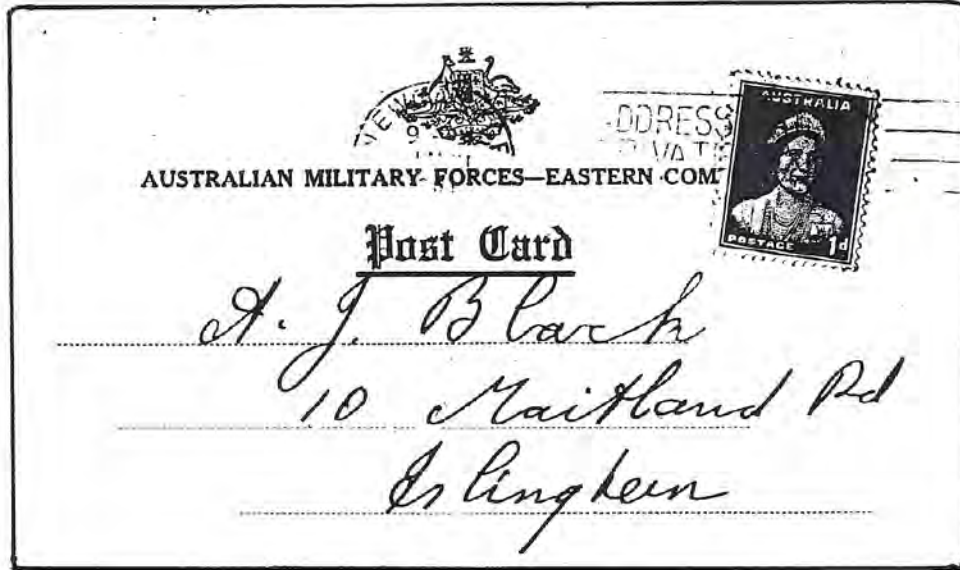 9
DDRESS
AUSTRALIA
AUSTRALIAN MILITARY FORCES—EASTERN COM
POSTAGE 1d
Post Card
A. J. Black
10 Maitland Rd
Islington